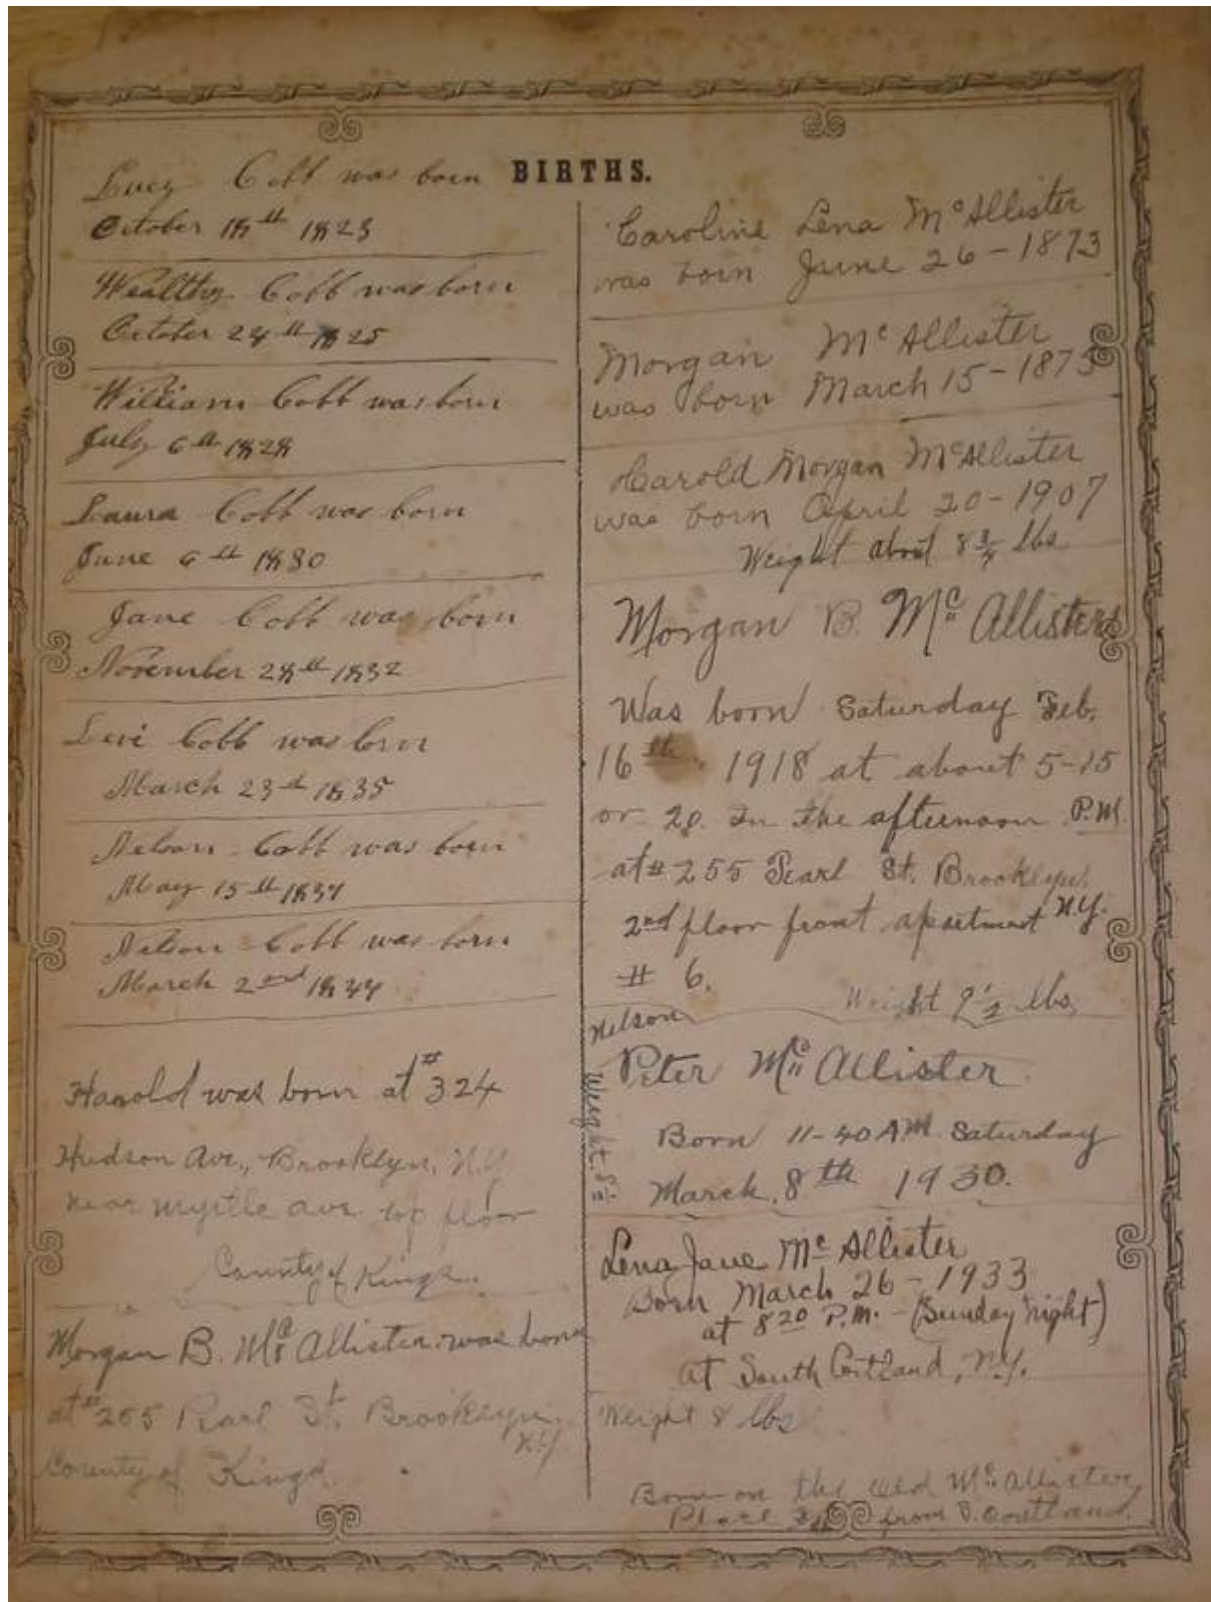 BIRTHS.
Lucy Cobb was born
October 18th 1823
Wealthy Cobb was born
October 24th 1825
William Cobb was born
July 6th 1828
Laura Cobb was born
June 6th 1830
Jane Cobb was born
November 28th 1832
Levi Cobb was born
March 23d 1835
Nelson Cobb was born
May 15th 1837
Nelson Cobb was born
March 2nd 1844
Harold was born at #324
Hudson Ave., Brooklyn, N.Y.
near myrtle ave. top floor
County of Kings.
Morgan B. McAllister was born
at #255 Pearl St. Brooklyn,
N.Y.
County of Kings.
Caroline Lena McAllister
was born June 26-1873
Morgan McAllister
was born March 15-1875
Harold Morgan McAllister
was born April 20-1907
Weight about 8 3/4 lbs.
Morgan B. McAllister
Was born Saturday Feb.
16th. 1918 at about 5-15
or 20. In the afternoon P.M.
at #255 Pearl St. Brooklyn,
N.Y.
2nd floor front apartment
# 6.
Weight 9 1/2 lbs.
Nelson
Peter McAllister.
Weight.
Born 11-40 A.M. Saturday
March, 8th 1930.
Lena Jane McAllister
Born March 26-1933
at 8 20 P.M. - (Sunday night)
at South Cortland, N.Y.
Weight 8 lbs
Born on the old McAllister
Place from S. Cortland.